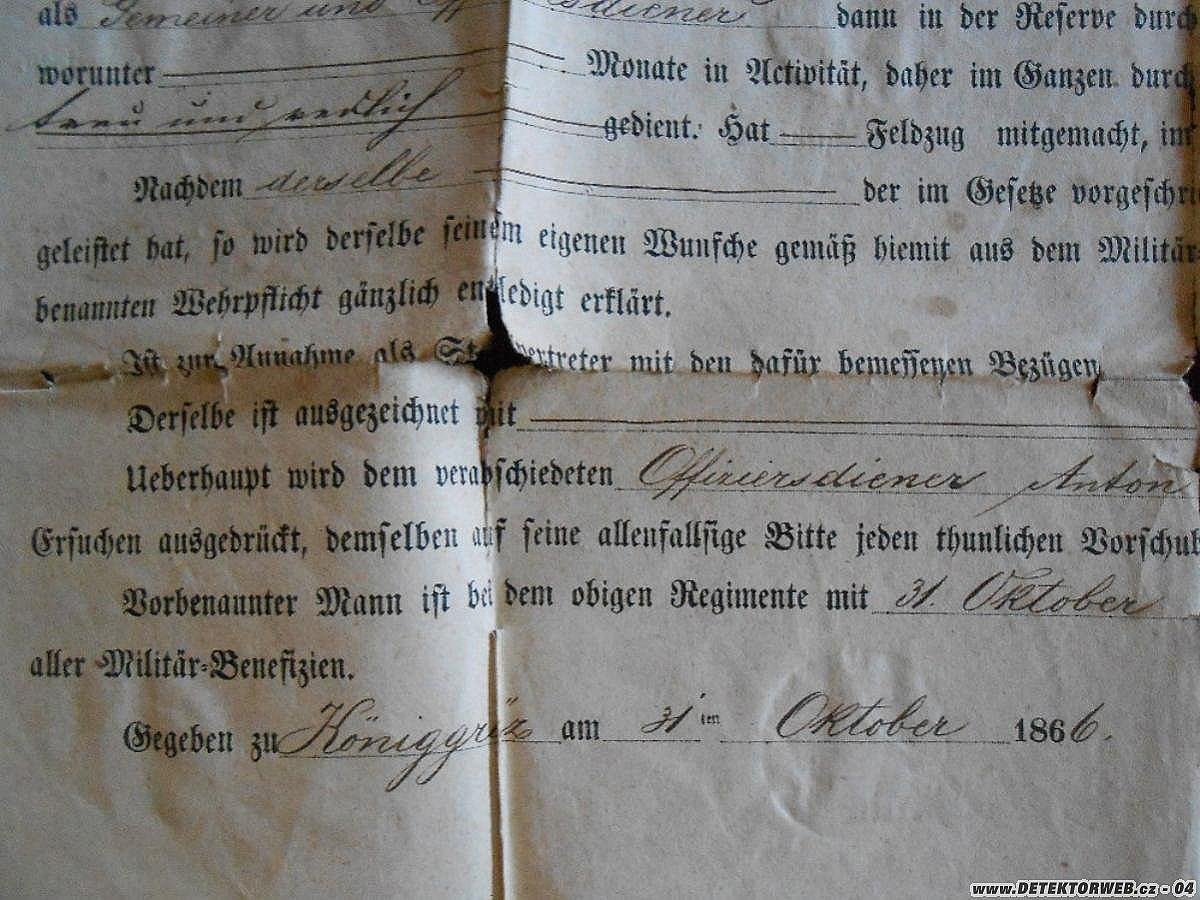 als Gemeiner und Offiziersdiener dann in der Reserve durch
worunter Monate in Activität, daher im Ganzen durch
treu und redlich gedient. Hat Feldzug mitgemacht, im
Nachdem derselbe der im Gesetze vorgeschri
geleistet hat, so wird derselbe seinem eigenen Wunsche gemäß hiemit aus dem Militär-
benannten Wehrpflicht gänzlich entledigt erklärt.
Ist zur Annahme als St vertreter mit den dafür bemessenen Bezügen
Derselbe ist ausgezeichnet mit
Ueberhaupt wird dem verabschiedeten Offiziersdiener Anton
Ersuchen ausgedrückt, demselben auf seine allenfallsige Bitte jeden thunlichen Vorschub
Vorbenannter Mann ist bei dem obigen Regimente mit 31. Oktober
aller Militär-Benefizien.
Gegeben zu Königgräz am 31ten Oktober 1866.
www.DETEKTORWEB.cz - 04